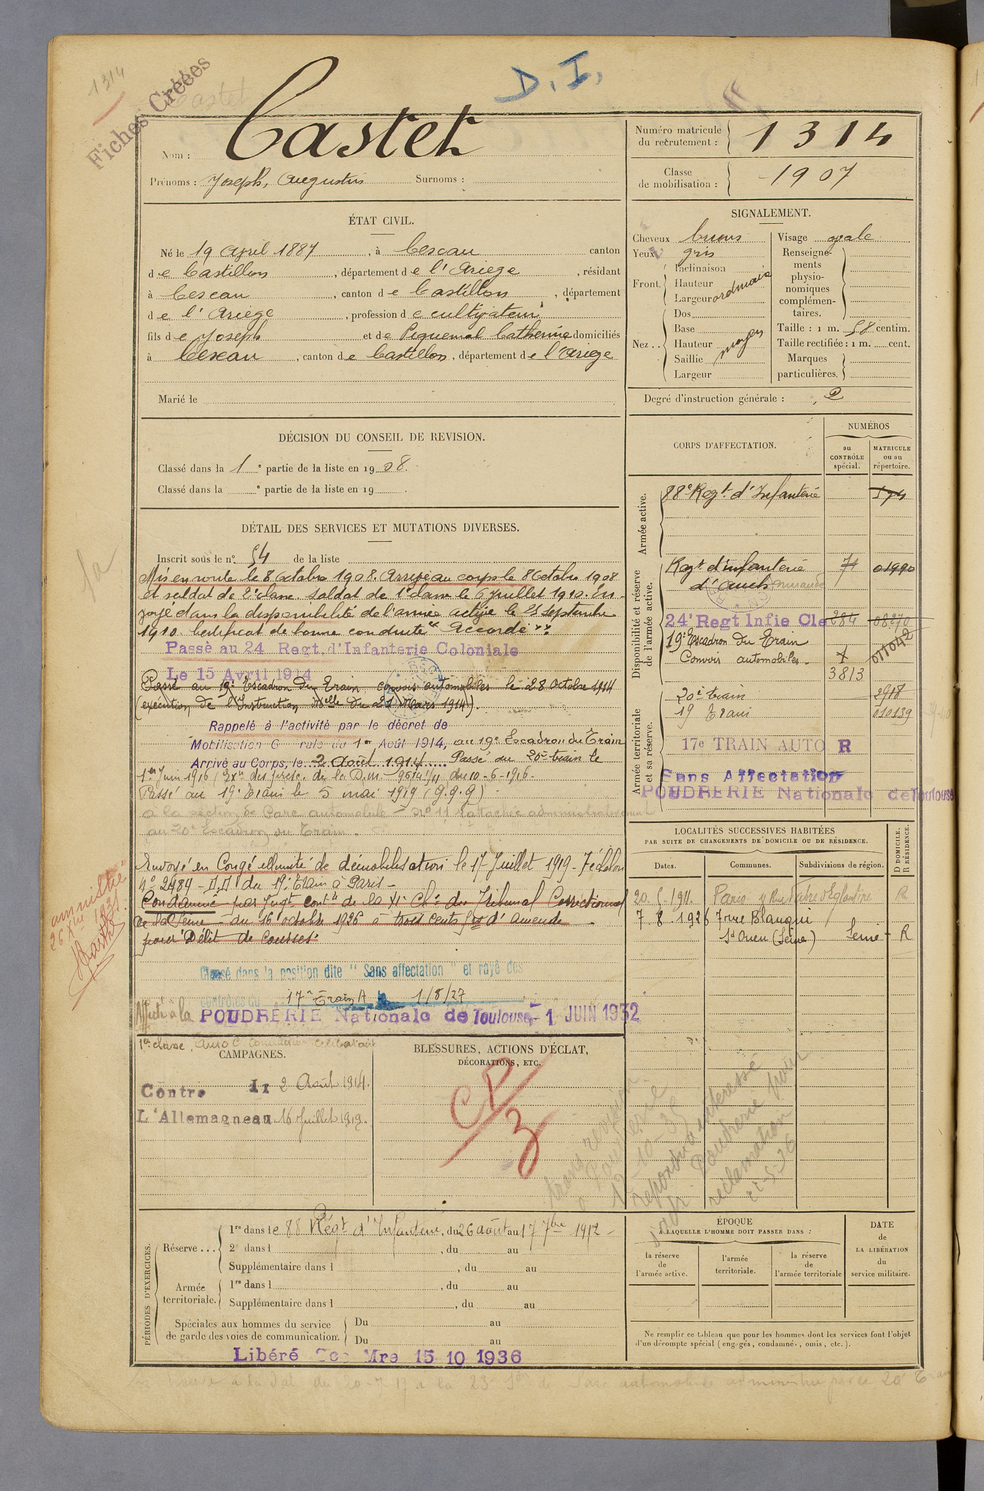 1314
Fiches Créées
D. I.
Nom : Castet
Prénoms : Joseph, Augustin Surnoms :
Numéro matricule du recrutement : 1314
Classe de mobilisation : 1907
ÉTAT CIVIL.
Né le 19 Avril 1887, à Cescau canton
de Castillon, département de l'Ariège, résidant
à Cescau, canton de Castillon, département
de l'Ariège, profession de cultivateur
fils de Joseph et de Piquemal Catherine domiciliés
à Cescau, canton de Castillon, département de l'Ariège
Marié le
SIGNALEMENT.
Cheveux bruns
Yeux gris
Front Inclinaison
Hauteur
Largeur ordinaire
Nez Dos
Base
Hauteur moyen
Saillie
Largeur
Visage ovale
Renseignements physionomiques complémentaires.
Taille : 1 m. 58 centim.
Taille rectifiée : 1 m. cent.
Marques particulières.
Degré d'instruction générale : 2
DÉCISION DU CONSEIL DE REVISION.
Classé dans la 1e partie de la liste en 1908.
Classé dans la e partie de la liste en 19
DÉTAIL DES SERVICES ET MUTATIONS DIVERSES.
Inscrit sous le n°. 54 de la liste
Mis en route le 8 octobre 1908. Arrivé au corps le 8 Octobre 1908
et soldat de 2e classe. Soldat de 1e classe le 6 juillet 1910. En-
voyé dans la disponibilité de l'armée active le 25 septembre
1910. Certificat de bonne conduite "Accordé".
Passé au 24 Regt. d'Infanterie Coloniale
Le 15 Avril 1914
Passé au 19e Escadron du Train convois automobiles le 28 octobre 1914
(exécution de l'Instruction Mlle du 21 Mars 1914).
Rappelé à l'activité par le décret de
Mobilisation G rale du 1er Août 1914, au 19e Escadron du Train
Arrivé au Corps, le 2 Août 1914 Passé au 20e train le
1er Juin 1916
Passé au 19e Train le 5 mai 1919 (9.9.9)
à la section de Parc automobile
au 20e Escadron du Train.
Envoyé en Congé illimité de démobilisation le 17 Juillet 1919. 7e échelon
n° 2489 - D.D du 19e Train à Paris -
Condamné par Jugt contre de la 11e Che du Tribunal Correctionnel
de la Seine du 16 octobre 1926 à trois cents frs d'amende
pour "Délit de courses"
amnistié
Classé dans la position dite "Sans affectation" et rayé des
contrôles du 17e Train A le 1/8/27
Affecté à la POUDRERIE Nationale de Toulouse - 1 JUIN 1932
CORPS D'AFFECTATION.
NUMÉROS
au CONTRÔLE spécial.
MATRICULE ou au répertoire.
Armée active.
88e Regt d'Infanterie 174
Disponibilité et réserve de l'armée active.
Regt d'infanterie d'Auch
24e Regt Infie Cle 284
19e Escadron du Train
Convois automobiles. 3813 011042
Armée territoriale et sa réserve.
20e train 2918
19 Train 010139
17e TRAIN AUTO R
Sans Affectation
POUDRERIE Nationale de Toulouse
LOCALITÉS SUCCESSIVES HABITÉES
PAR SUITE DE CHANGEMENTS DE DOMICILE OU DE RÉSIDENCE.
Dates. Communes. Subdivisions de région. D DOMICILE. R RÉSIDENCE.
Paris 7 Rue Fabre d'Eglantine R
7.8.1926 7 rue Blanqui
St Ouen (Seine) Seine R
CAMPAGNES.
Contre
L'Allemagne
du 2 Août 1914
au 16 Juillet 1919.
BLESSURES, ACTIONS D'ÉCLAT,
DÉCORATIONS, ETC.
CP/3
réclamation
PÉRIODES D'EXERCICES.
Réserve... 1re dans le 88 Régt d'Infanterie, du 26 août au 17 7bre 1912 -
2e dans l , du au
Supplémentaire dans l , du au
Armée territoriale. 1re dans l , du au
Supplémentaire dans l , du au
Spéciales aux hommes du service de garde des voies de communication. Du au
Du au
Libéré Mre 15 10 1936
ÉPOQUE
À LAQUELLE L'HOMME DOIT PASSER DANS :
la réserve de l'armée active.
l'armée territoriale.
la réserve de l'armée territoriale
DATE de LA LIBÉRATION du service militaire.
Ne remplir ce tableau que pour les hommes dont les services font l'objet
d'un décompte spécial (engagés, condamnés, omis, etc.).